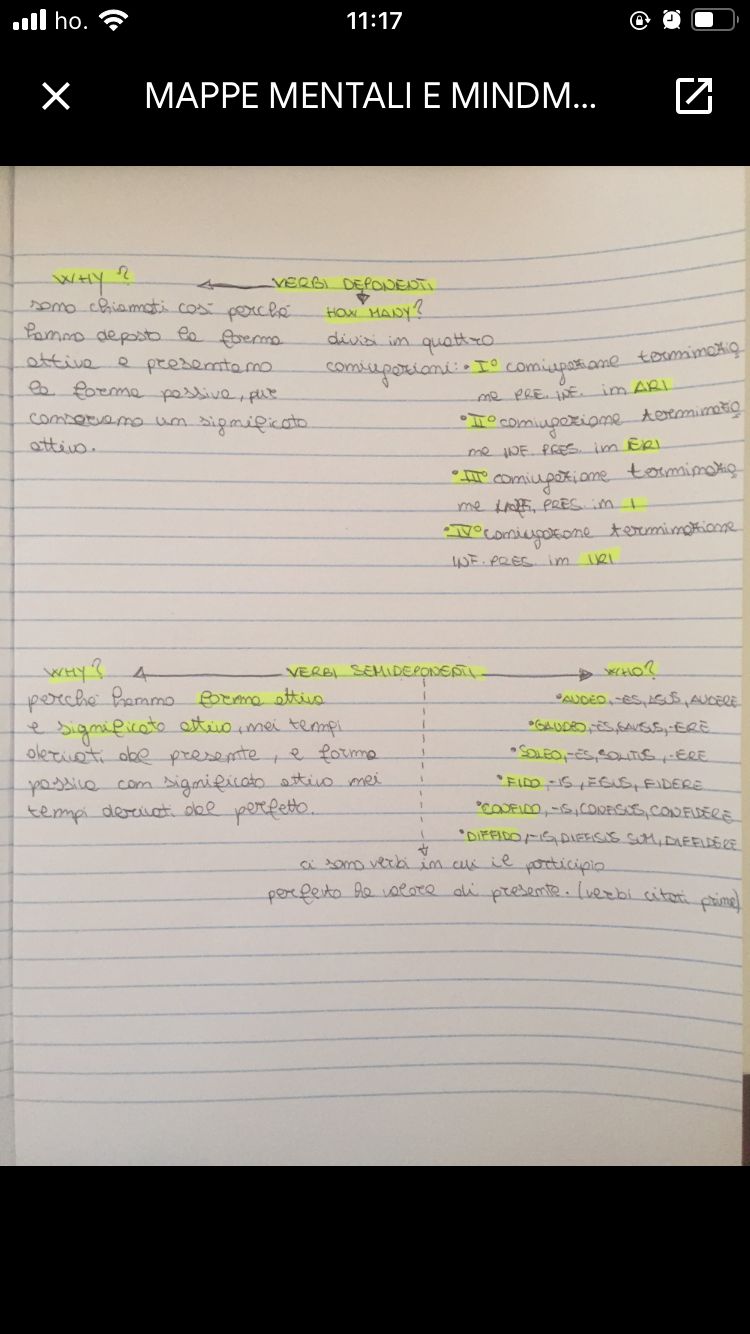 ho. 11:17
MAPPE MENTALI E MINDM...
WHY? VERBI DEPONENTI
sono chiamati così perché HOW MANY?
hanno deposto la forma divisi in quattro
attiva e presentano coniugazioni: • I° coniugazione terminazio
la forma passiva, pur ne PRE. INF. in ARI
conservano un significato • II° coniugazione terminazio
attivo. ne INF. PRES. in ERI
• III° coniugazione terminazio
ne INF. PRES. in I
• IV° coniugazione terminazione
INF. PRES. in IRI
WHY? VERBI SEMIDEPONENTI WHO?
perché hanno forma attiva • AUDEO, -ES, ASUS, AUDERE
e significato attivo, nei tempi • GAUDEO, -ES, GAVISUS, -ERE
derivati dal presente, e forma • SOLEO, -ES, SOLITUS, -ERE
passiva con significato attivo nei • FIDO, -IS, FISUS, FIDERE
tempi derivati dal perfetto. • CONFIDO, -IS, CONFISUS, CONFIDERE
• DIFFIDO, -IS, DIFFISUS SUM, DIFFIDERE
ci sono verbi in cui il participio
perfetto ha valore di presente. (verbi citati prima)